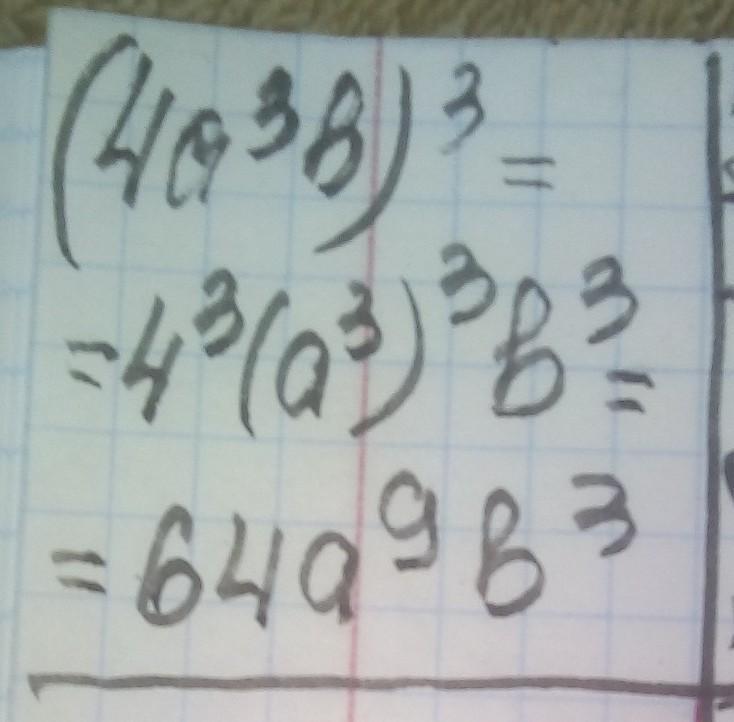 (4a³b)³ =
= 4³(a³)³b³ =
= 64a⁹b³